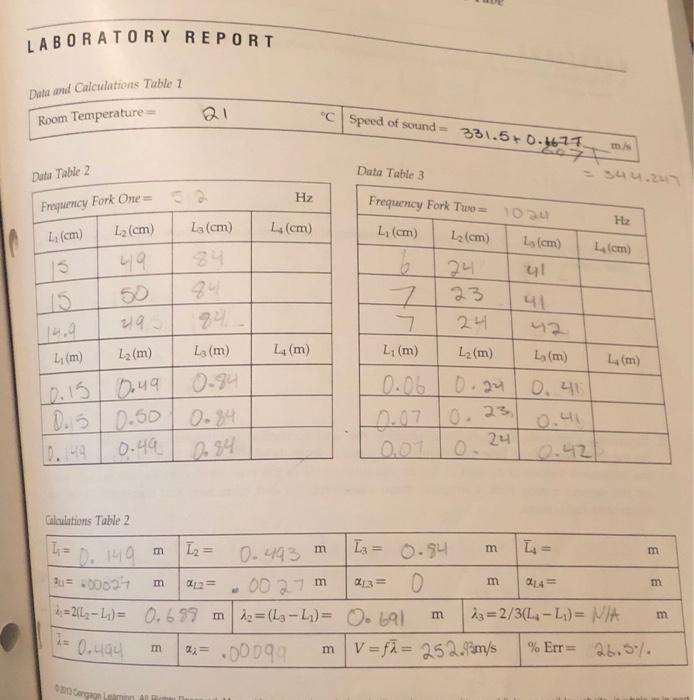 LABORATORY REPORT
Data and Calculations Table 1
Room Temperature = 21 °C Speed of sound = 331.5 + 0. m/s
= 344.247
Data Table 2
Frequency Fork One = 512 Hz
L₁ (cm) L₂ (cm) L₃ (cm) L₄ (cm)
15 49 84
15 50 84
14.9 49.5 84
L₁ (m) L₂ (m) L₃ (m) L₄ (m)
0.15 0.49 0.84
0.15 0.50 0.84
0.149 0.49 0.84
Data Table 3
Frequency Fork Two = 1024 Hz
L₁ (cm) L₂ (cm) L₃ (cm) L₄ (cm)
6 24 41
7 23 41
7 24 42
L₁ (m) L₂ (m) L₃ (m) L₄ (m)
0.06 0.24 0.41
0.07 0.23 0.41
0.07 0.24 0.42
Calculations Table 2
L̄₁ = 0.149 m L̄₂ = 0.493 m L̄₃ = 0.84 m L̄₄ = m
αL1 = .00027 m αL2 = .0027 m αL3 = 0 m αL4 = m
λ₁ = 2(L₂ – L₁) = 0.689 m λ₂ = (L₃ – L₁) = 0.691 m λ₃ = 2/3(L₄ – L₁) = N/A m
λ̄ = 0.494 m αλ = .00099 m V = fλ̄ = 252.93 m/s % Err = 26.5%
© 2013 Cengage Learning. All Rights